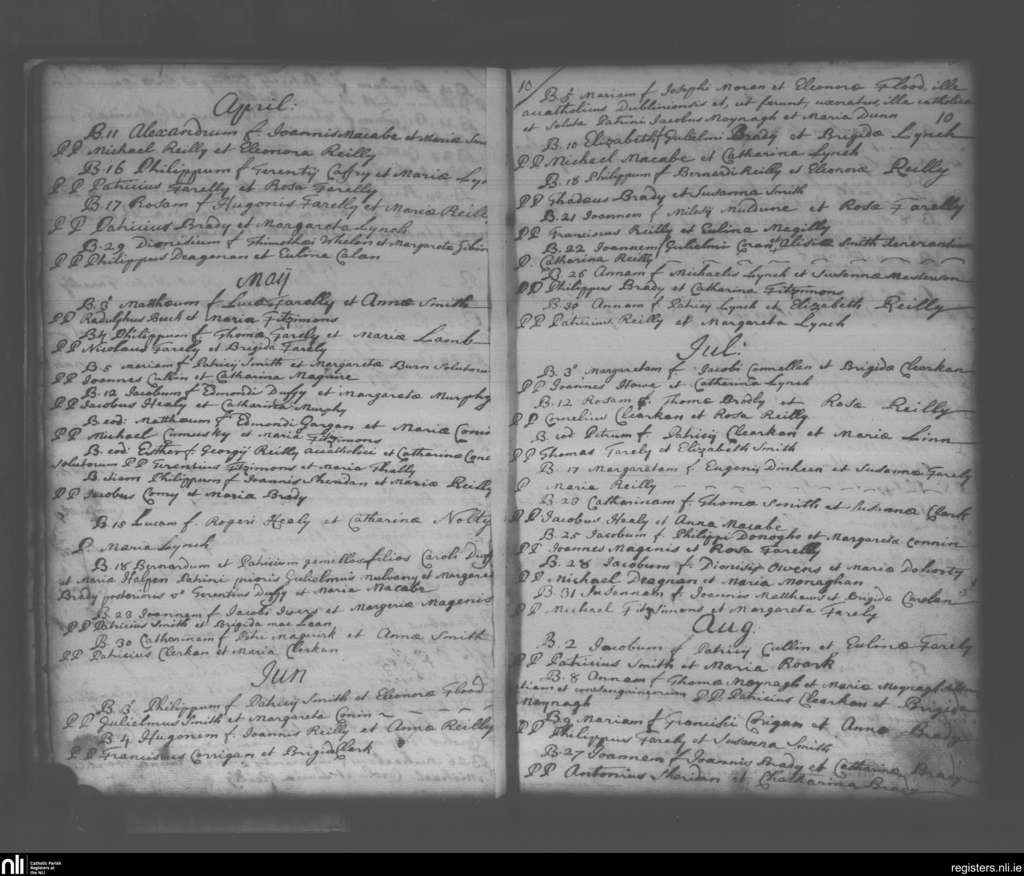 April:
B. 11 Alexandrum f. Joannis Macabe et Mariæ
PP Michael Reilly et Eleonora Reilly
B. 16 Philippum f. Terentij Cafry et Mariæ
PP Patricius Farelly et Rosa Farelly
B. 17 Rosam f. Hugonis Farelly et Mariæ Reilly
PP Patricius Brady et Margareta Lynch
B. 29 Dionisium f. Thimothei Whelan et Margareta
PP Philippus Deagnan et Eulina Calan
Maij
B. 3 Matthæum f. Lucæ Farelly et Annæ Smith
PP Radulphus Buck et Maria Fitzimons
B. 4 Philippum f. Thomæ Farely et Mariæ Lamb
PP Nicolaus Farely et Brigida Farely
B. 5 Mariam f. Patricij Smith et Margaretæ Burn Solutorum
PP Joannes Cullin et Catharina Maguire
B. 12 Jacobum f. Edmondi Duffy et Margaretæ Murphy
PP Jacobus Healy et Catharina Murphy
B. eod. Matthæum f. Edmondi Gargan et Mariæ
PP Michael Cumusky et Maria Fitzimons
B. eod. Esther f. Georgij Reilly accatholici et Catharinæ
solutorum PP Terentius Fitzimons et Maria
B. etiam Philippum f. Joannis Sheridan et Mariæ Reilly
PP Jacobus Comy et Maria Brady
B. 15 Lucam f. Rogeri Healy et Catharinæ Nolty
P. Maria Lynch
B. 18 Bernardum et Patricium gemellos filios Caroli Duffy
et Maria Halpen Patrini prioris Gulielmus Mulvany et Margareta
Brady posterioris vo Terentius Duffy et Maria Macabe
B. 23 Joannem f. Jacobi Ivers et Margeriæ Magenis
PP Patricius Smith et Brigida mac Lean
B. 30 Catharinam f. Petri Maguirk et Annæ Smith
PP Patricius Clerkan et Maria Clerkan
Jun
B. 3 Philippum f. Patricij Smith et Eleonoræ Flood
PP Gulielmus Smith et Margareta Conin
B. 4 Hugonem f. Joannis Reilly et Annæ Reilly
PP Franciscus Corrigan et Brigida Clerk
10
B. 5 Mariam f. Josephi Moran et Eleonoræ Flood, ille
accatholicus Dubliniensis et, ut ferunt, uxoratus, illa catholica
et soluta Patrini Jacobus Moynagh et Maria Dunn 10
B. 10 Elizabeth f. Gulielmi Brady et Brigidæ Lynch
PP Michael Macabe et Catharina Lynch
B. 18 Philippum f. Bernardi Reilly et Eleonoræ Reilly
PP Thadæus Brady et Susanna Smith
B. 21 Joannem f. Miletij Muldune et Rosæ Farelly
PP Franciscus Reilly et Eulina Magilly
B. 22 Joannem f. Gulielmi et Alisiæ Smith
P. Catharina Reilly
B. 26 Annam f. Michaelis Lynch et Susannæ Masterson
PP Philippus Brady et Catharina Fitzimons
B. 30 Annam f. Patricij Lynch et Elizabeth Reilly
PP Patricius Reilly et Margareta Lynch
Jul:
B. 3 Margaretam f. Jacobi Connellan et Brigida Clearkan
PP Joannes Howe et Catherina Lynch
B. 12 Rosam f. Thomæ Brady et Rosæ Reilly
PP Cornelius Clearkan et Rosa Reilly
B. eod. Petrum f. Patricij Clearkan et Mariæ Linn
PP Thomas Farely et Elizabeth Smith
B. 17 Margaretam f. Eugenij Dinkeen et Susannæ Farely
P Maria Reilly
B. 23 Catharinam f. Thomæ Smith et Susannæ Clark
PP Jacobus Healy et Anna Macabe
B. 25 Jacobum f. Philippi Donogho et Margareta Connin
PP Joannes Magenis et Rosa Farelly
B. 28 Jacobum f. Dionisij Owens et Maria Dohorty
PP Michael Deagnan et Maria Monaghan
B. 31 f. Joannis Matthews et Brigida Carolan
PP Michael Fitzsimons et Margareta Farely
Aug:
B. 2 Jacobum f. Patricij Cullin et Eulinæ Farely
PP Patricius Smith et Maria Roark
B. 8 Annam f. Thomæ Moynagh et Mariæ Moynagh
et consanguineorum PP Patricius Clearkan et Brigida
Moynagh
B. 9 Mariam f. Francisci Corigan et Annæ Brady
PP Philippus Farely et Susanna Smith
B. 27 Joannem f. Joannis Brady et Catharinæ Brady
PP Antonius Sheridan et Chatharina Brady
nli
Catholic Parish
Registers at
the NLI
registers.nli.ie